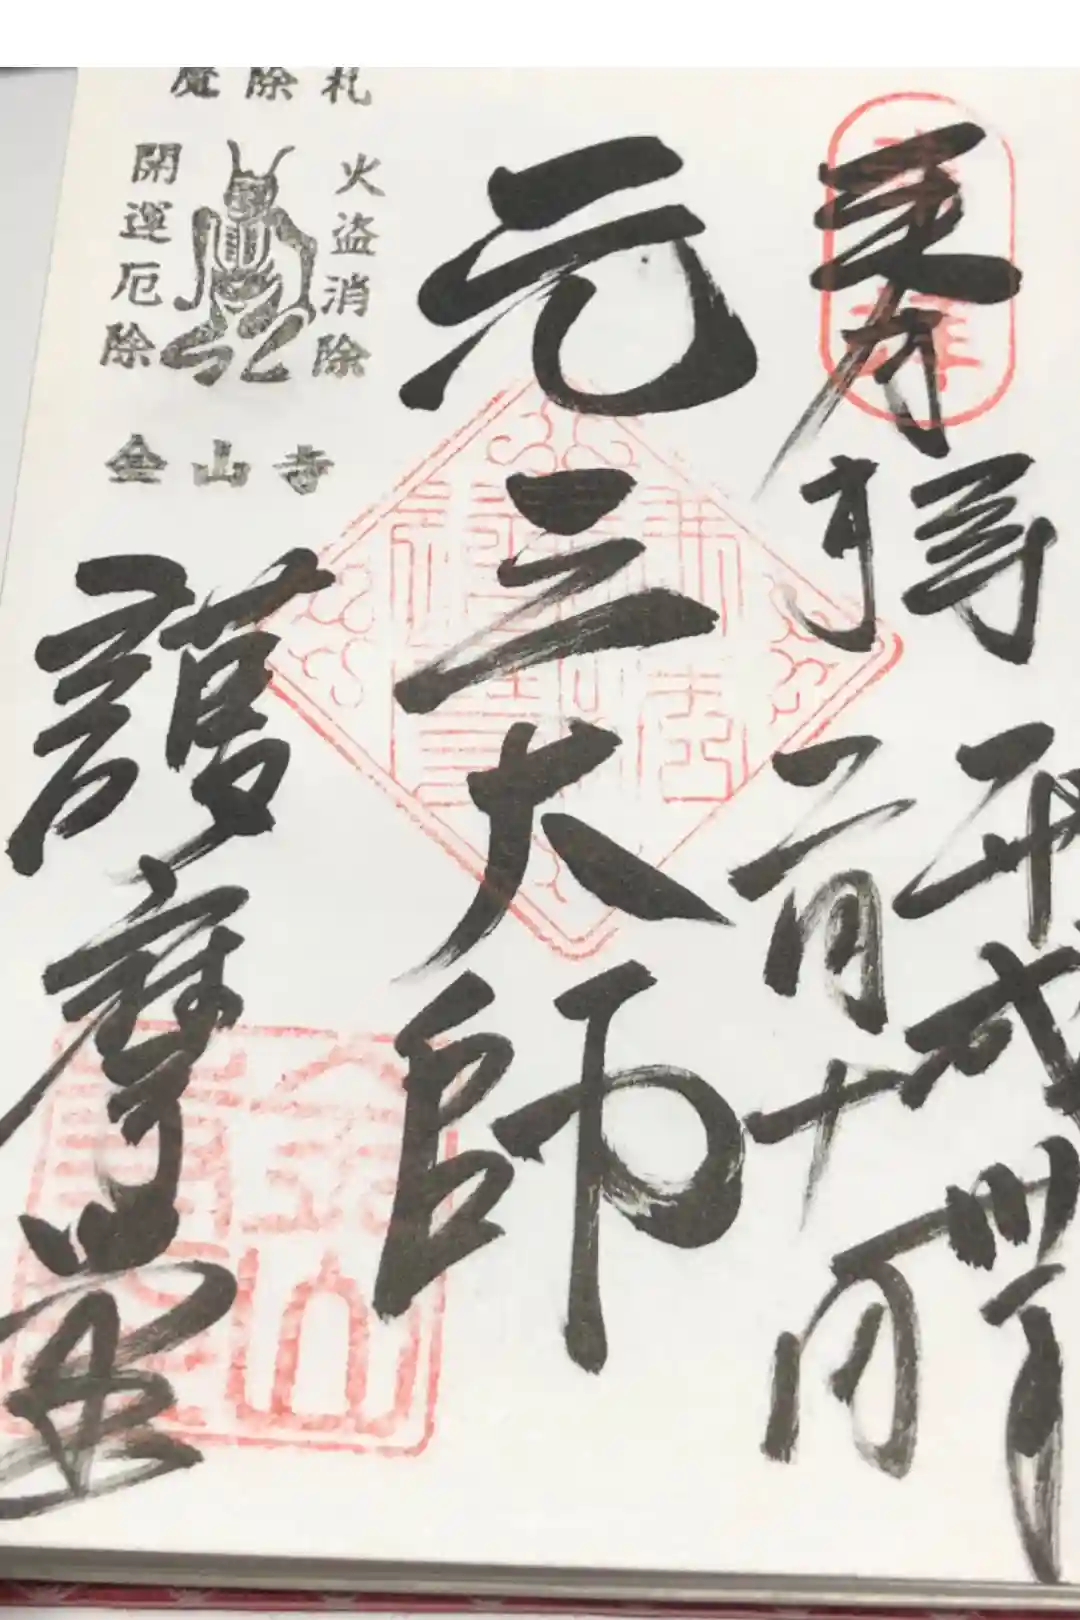 魔除札
火盗消除
開運厄除
金山寺
奉拝
平成卅年
二月十日
元三大師
護摩堂